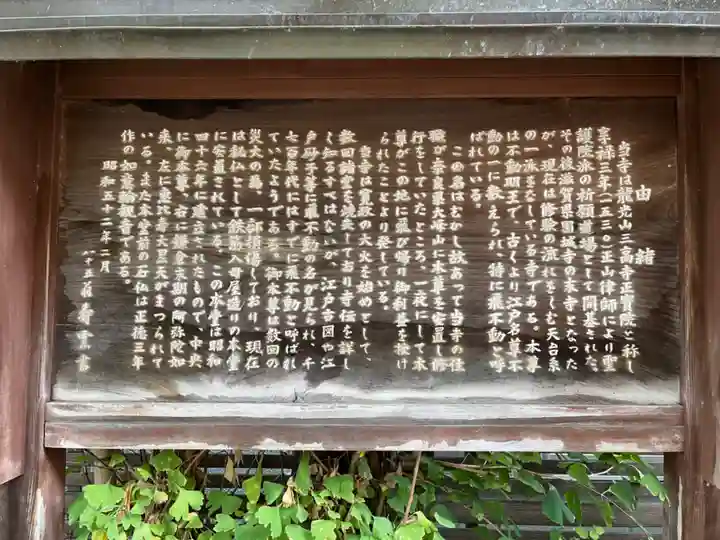 由緒
当寺は龍光山三高寺正寳院と称し
享禄三年(一五三〇)正山律師により聖
護院派の祈願道場として開基された。
その後滋賀県園城寺の末寺となった
が、現在は修験の流れをくむ天台系
の一派をなしている寺である。本尊
は不動明王で、古くより江戸名尊不
動の一に数えられ、特に飛不動と呼
ばれている。
この名はむかし故あって当寺の住
職が奈良県大峰山に本尊を安置し修
行をしていたところ、一夜にして本
尊がこの地に飛び帰り御利益を授け
られたことより発している。
当寺は寛政の大火を始めとして、
数回諸堂を焼失しており寺伝を詳し
く知るすべはないが、江戸古図や江
戸砂子等に飛不動の名が見られ、千
七百年代にはすでに飛不動と呼ばれ
ていたようである。御本尊は数回の
災火の為、一部損傷しており、現在
は秘仏として鉄筋入母屋造りの本堂
に安置されている。この本堂は昭和
四十六年に建立されたもので、中央
に御本尊、右に鎌倉末期の阿弥陀如
来、左に恵比寿大黒天がまつられて
いる。また本堂前の石仏は正徳三年
作の如意輪観音である。
昭和五十二年二月